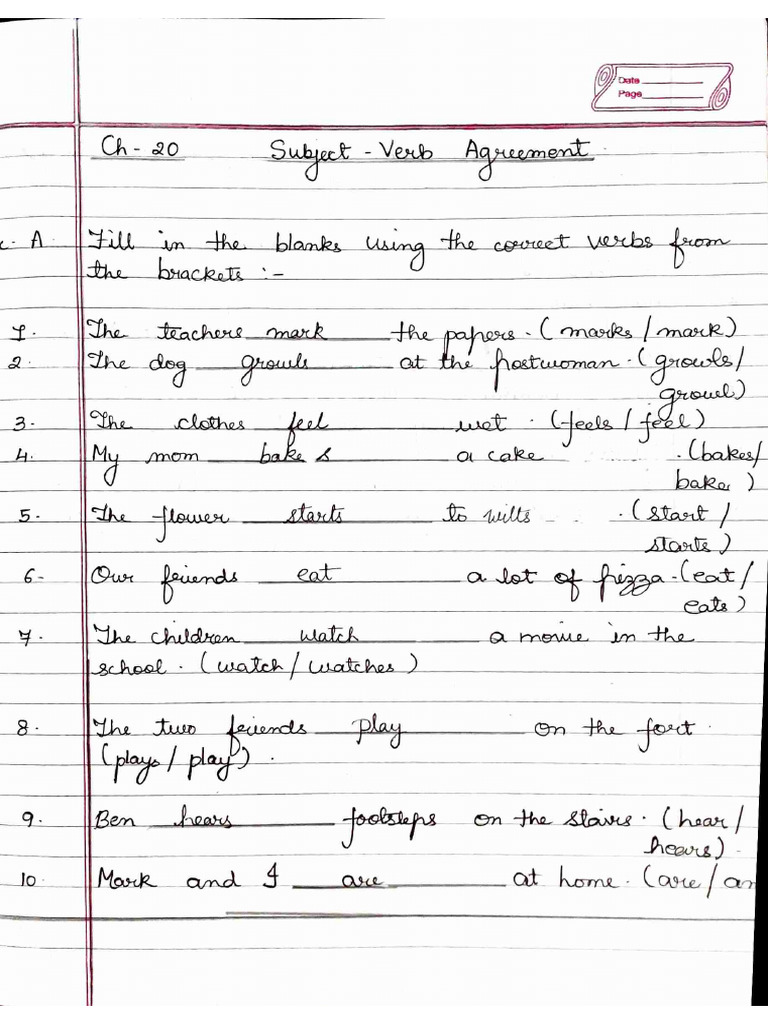 Date
Page
Ch - 20 Subject - Verb Agreement.
A. Fill in the blanks using the correct verbs from
the brackets :-
1. The teachers mark the papers. (marks / mark)
2. The dog growls at the postwoman. (growls /
growl)
3. The clothes feel wet. (feels / feel)
4. My mom bakes a cake . (bakes/
bake)
5. The flower starts to wilts . (start /
starts)
6. Our friends eat a lot of pizza. (eat /
eats)
7. The children watch a movie in the
school. (watch / watches)
8. The two friends play on the fort.
(plays / play).
9. Ben hears footsteps on the stairs. (hear /
hears).
10. Mark and I are at home. (are /